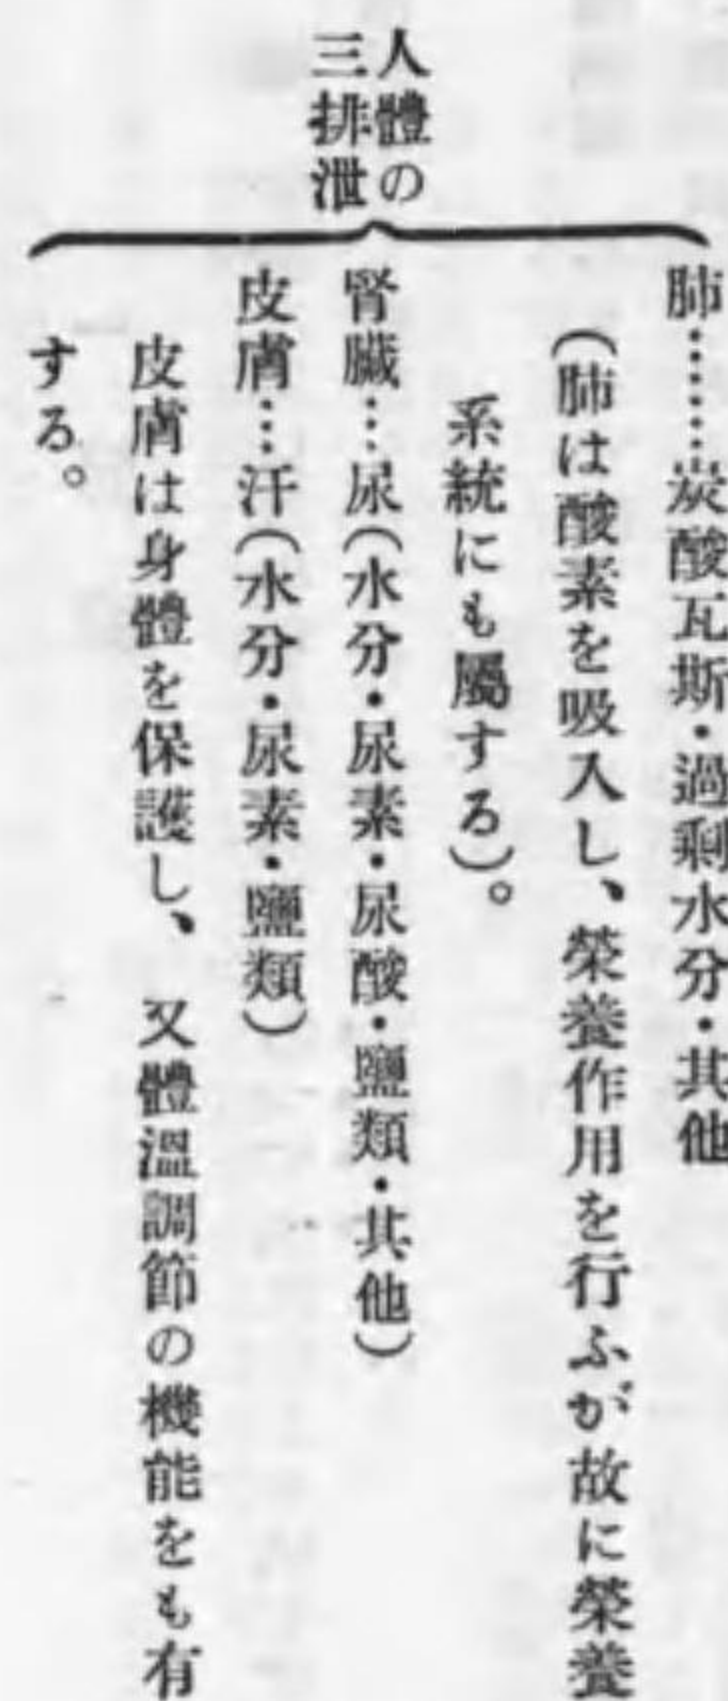 人體の
三排泄
肺……炭酸瓦斯・過剩水分・其他
(肺は酸素を吸入し、榮養作用を行ふが故に榮養
系統にも屬する)。
腎臟…尿(水分・尿素・尿酸・鹽類・其他)
皮膚…汗(水分・尿素・鹽類)
皮膚は身體を保護し、又體溫調節の機能をも有
する。